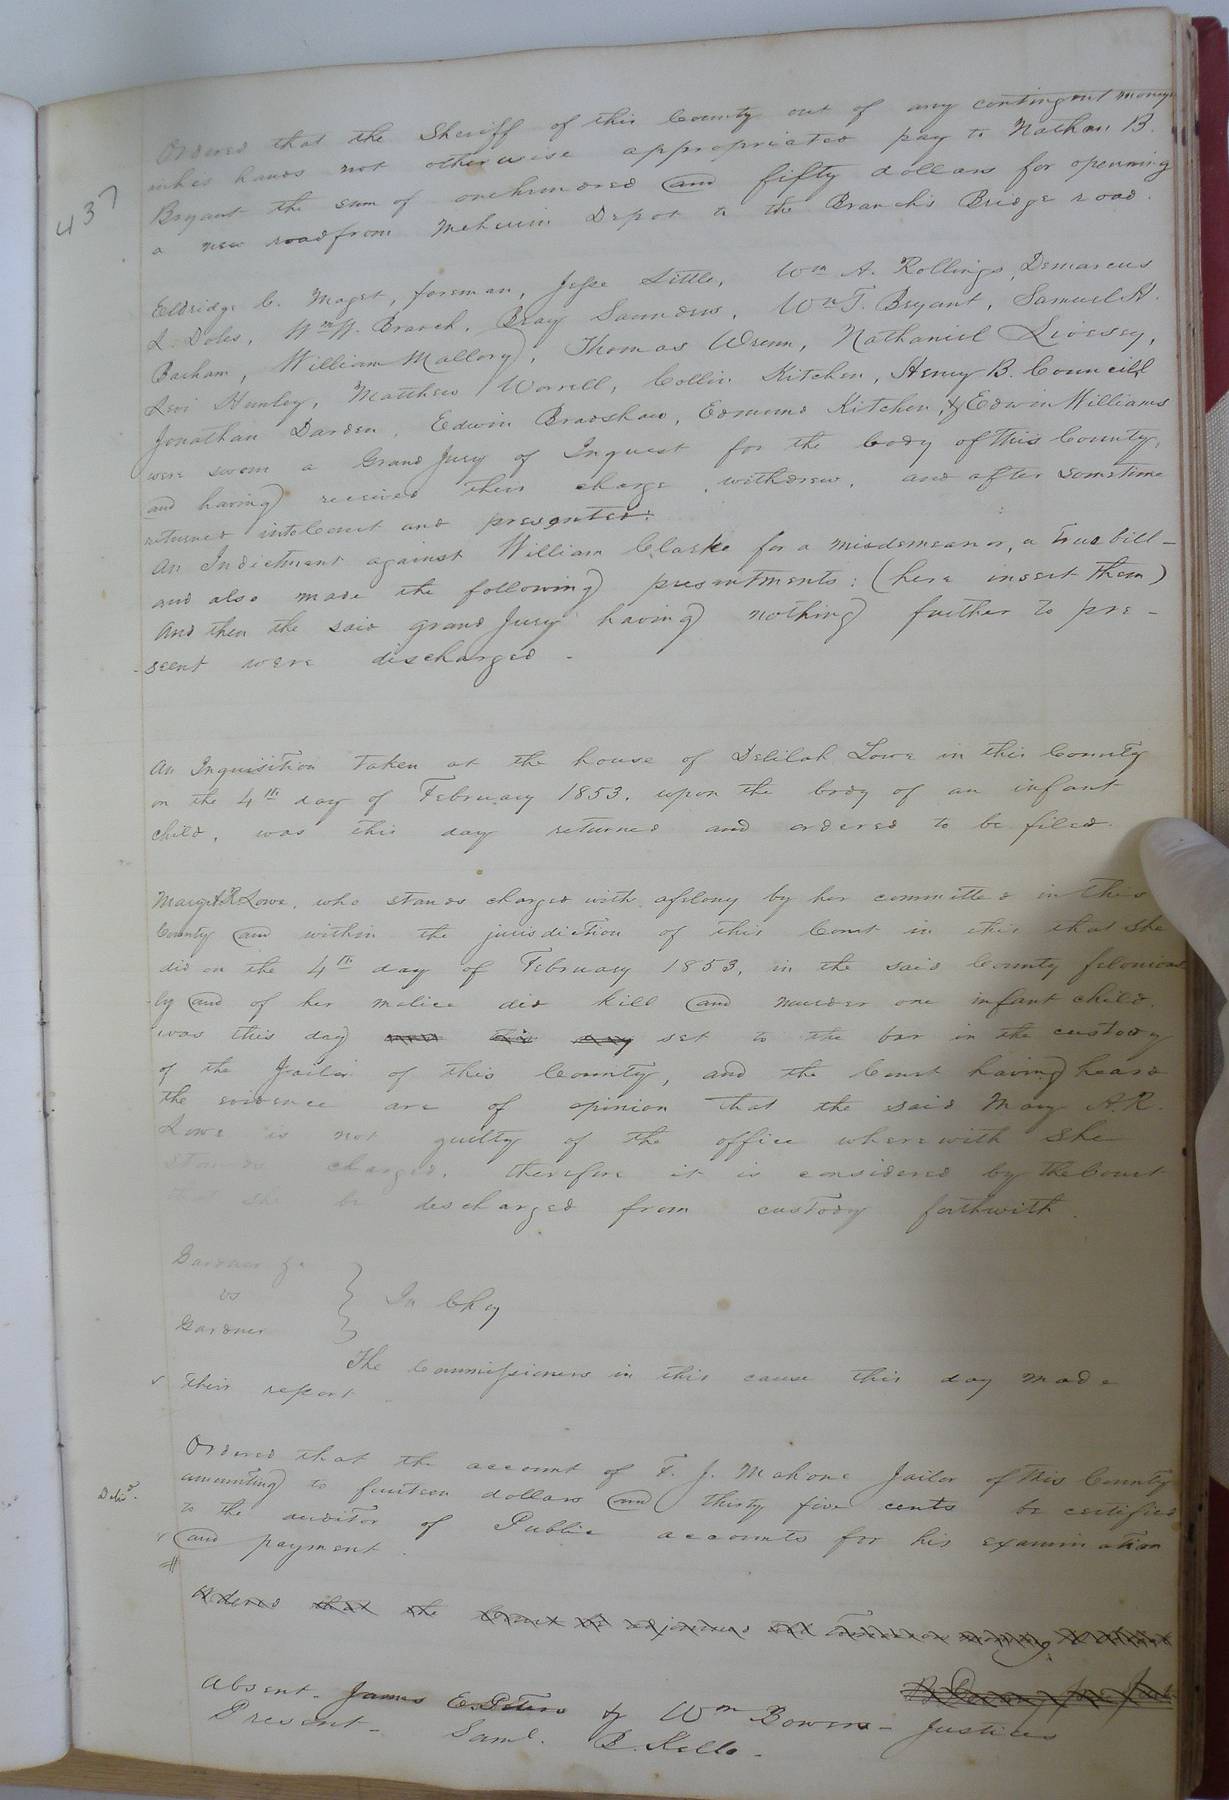 437
Ordered that the Sheriff of this County out of any contingent moneys
in his hands not otherwise appropriated pay to Nathan B.
Bryant the sum of one hundred and fifty dollars for openning
a new road from Meherrin Depot to the Branch's Bridge road.
Eldridge C. Maget, foreman, Jesse Little, Wm A. Rollings, Demarcus
L. Doles, Wm W. Branch, Bray Saunders, Wm T. Bryant, Samuel H.
Barham, William Mallory, Thomas Wrenn, Nathaniel Livesey,
Levi Hunley, Matthew Worrell, Collin Kitchen, Henry B. Councill
Jonathan Darden, Edwin Bradshaw, Edmund Kitchen, & Edwin Williams
were sworn a Grand Jury of Inquest for the body of this County,
and having received their charge, withdrew, and after sometime
returned into Court and presented:
An Indictment against William Clarke for a misdemeanor, a true bill-
and also made the following presentments: (here insert them)
And then the said grand Jury having nothing further to pre-
-scent were discharged -
An Inquisition taken at the house of Delilah Lowe in this County
on the 4th day of February 1853. upon the body of an infant
child, was this day returned and ordered to be filed.
Mary A. R. Lowe, who stands charged with a felony by her committed in this
County and within the jurisdiction of this Court in this that she
did on the 4th day of February 1853, in the said County felonious
-ly and of her malice did kill and murder one infant child.
was this day was this day set to the bar in the custody
of the Jailor of this County, and the Court having heard
the evidence are of opinion that the said Mary A. R.
Lowe is not guilty of the office wherewith she
stands charged, therefore it is considered by the Court
that she be discharged from custody forthwith.
Gardner &c
vs
Gardner
In Chy
The Commissioners in this cause this day made
their report
Ordered that the account of F. J. Mahone Jailor of this County
amounting to fourteen dollars and thirty five cents be certified
Delivd.
to the auditor of Public accounts for his examination
and payment.
Ordered that the Court be adjourned till Tomorrow morning
Absent. James E. Peters & Wm Bowers - Justices
Present - Saml. B. Kello -